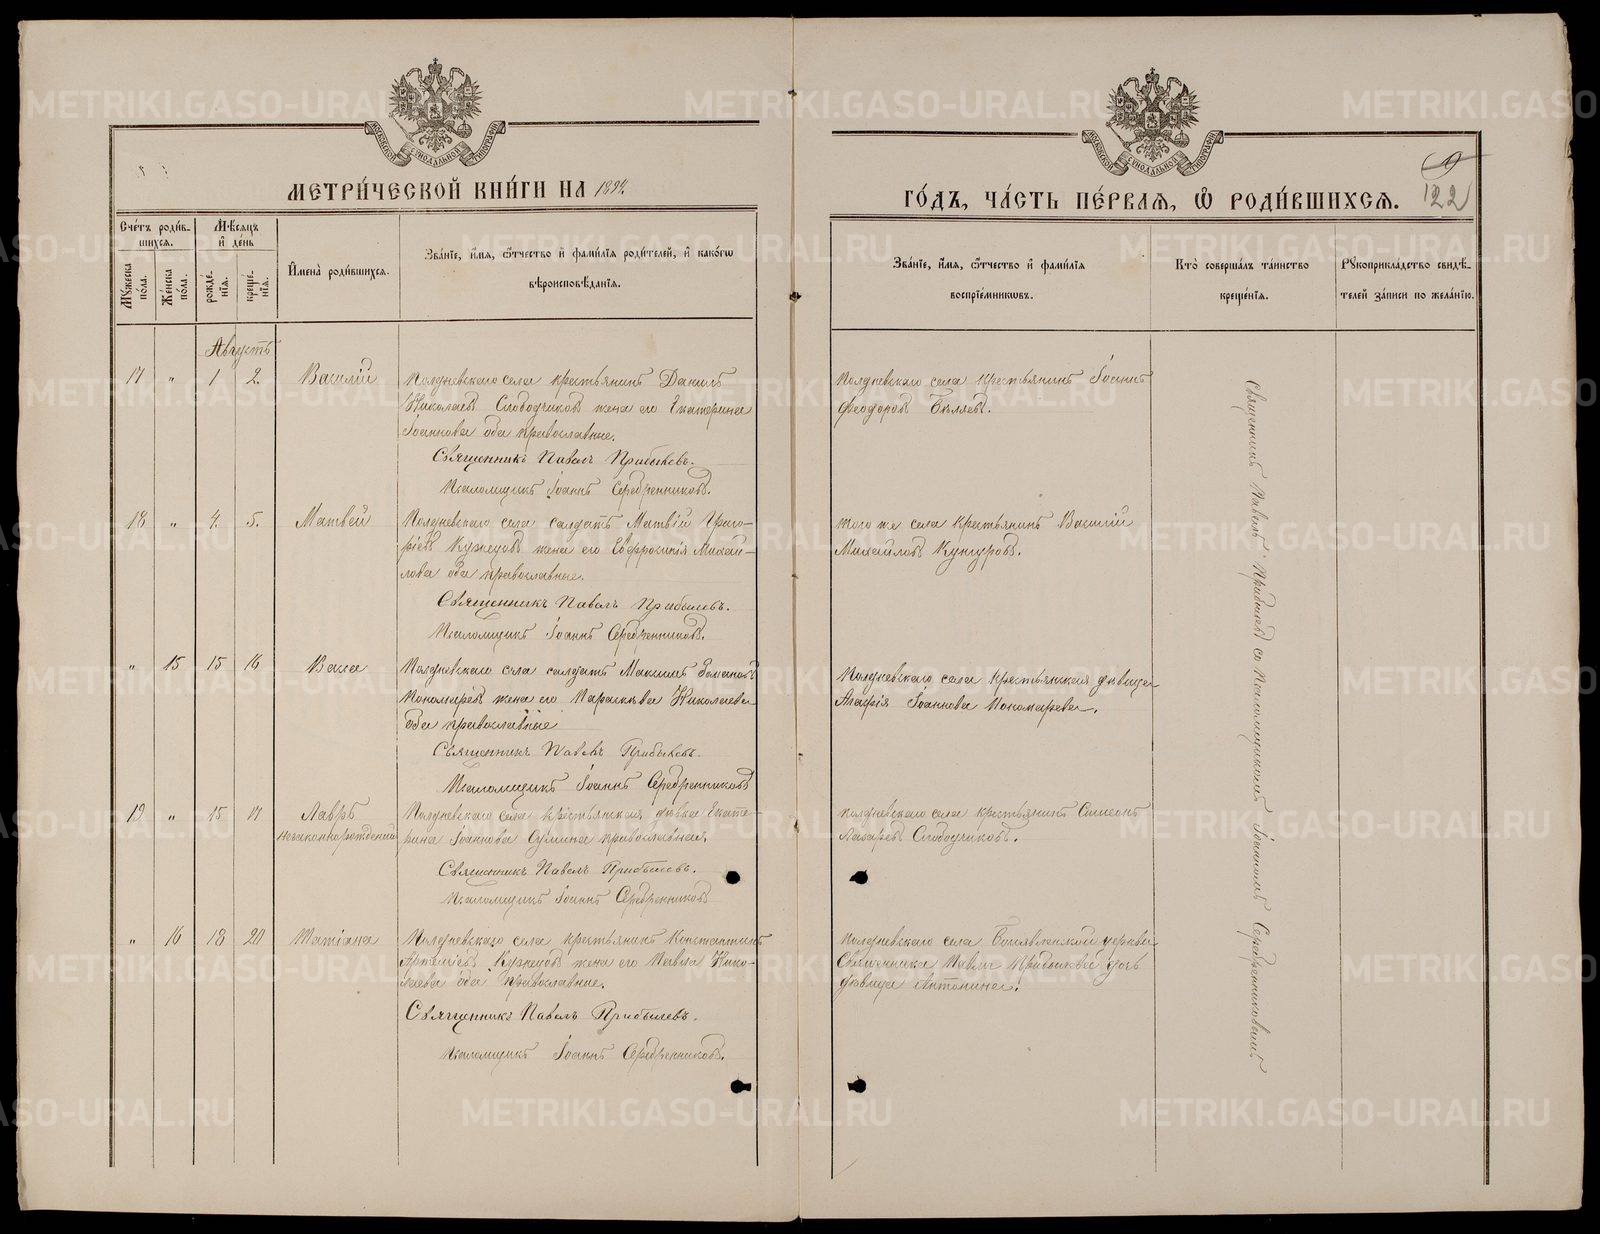 МЕТРИ́ЧЕСКОЙ КНИ́ГИ НА 1894.
ГО́ДЪ, ЧА́СТЬ ПЕ́РВАЯ, Ѽ РОДИ́ВШИХСЯ.
9
122
Сче́тъ роди́в-
шихся.
Му́жеска по́ла.
Же́нска по́ла.
Мѣ́сяцъ
и҆ де́нь
рожде́нїя.
креще́нїя.
И҆мена̀ роди́вшихся.
Зва́нїе, и҆́мя, ѻ҆́тчество и҆ фами́лїя роди́телей, и҆ како́гѡ
вѣроисповѣ́данїя.
Зва́нїе, и҆́мя, ѻ҆́тчество и҆ фами́лїя
воспрїе́мниковъ.
Кто̀ соверша́лъ та́инство
креще́нїя.
Рꙋкоприкла́дство свидѣ́-
телей за́писи по жела́нїю.
Августъ
17 " 1 2. Василій
Полдневскаго села крестьянинъ Даніилъ
Николаевъ Слободчиковъ жена его Екатерина
Іоаннова оба православные.
Священникъ Павелъ Прибылевъ.
Псаломщикъ Іоаннъ Серебренниковъ.
Полдневскаго села крестьянинъ Іоаннъ
Феодоровъ Бѣляевъ.
18 " 4. 5. Матвей
Полдневскаго села солдатъ Матвій Григо-
ріевъ Кузнецовъ жена его Евфросинія Михай-
лова оба православные.
Священникъ Павелъ Прибылевъ.
Псаломщикъ Іоаннъ Серебренниковъ.
того же села крестьянинъ Василій
Михайловъ Кунгуровъ.
" 15 15 16 Васса
Полдневскаго села солдатъ Максимъ
Пономаревъ жена его Параскева Николаева
оба православные
Священникъ Павелъ Прибылевъ.
Псаломщикъ Іоаннъ Серебренниковъ
Полдневскаго села крестьянская дѣвица
Агафія Іоаннова Пономарева.
19 " 15 17 Лавръ
незаконнорожденный
Полдневскаго села крестьянская дѣвка Екате-
рина Іоаннова Сумина православная.
Священникъ Павелъ Прибылевъ.
Псаломщикъ Іоаннъ Серебренниковъ
полдневскаго села крестьянинъ Симеонъ
Лазаревъ Слободчиковъ.
" 16 18 20 Татіана
Полдневскаго села крестьянинъ Константинъ
Артеміевъ Кузнецовъ жена его Павла Нико-
лаева оба православные.
Священникъ Павелъ Прибылевъ.
Псаломщикъ Іоаннъ Серебренниковъ.
полдневскаго села Богоявленской церкви
Священника Павла Прибылева дочь
дѣвица Антонина.
Священникъ Павелъ Прибылевъ со Псаломщикомъ Іоанномъ Серебренниковымъ
METRIKI.GASO-URAL.RU